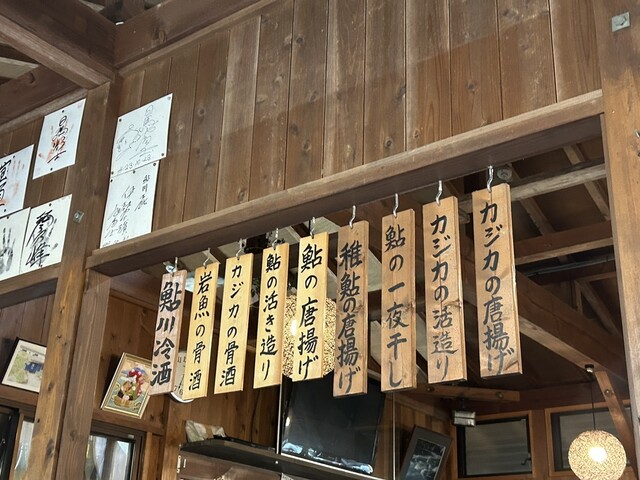 カジカの唐揚げ
カジカの活造り
鮎の一夜干し
稚鮎の唐揚げ
鮎の唐揚げ
鮎の活き造り
カジカの骨酒
岩魚の骨酒
鮎川冷酒